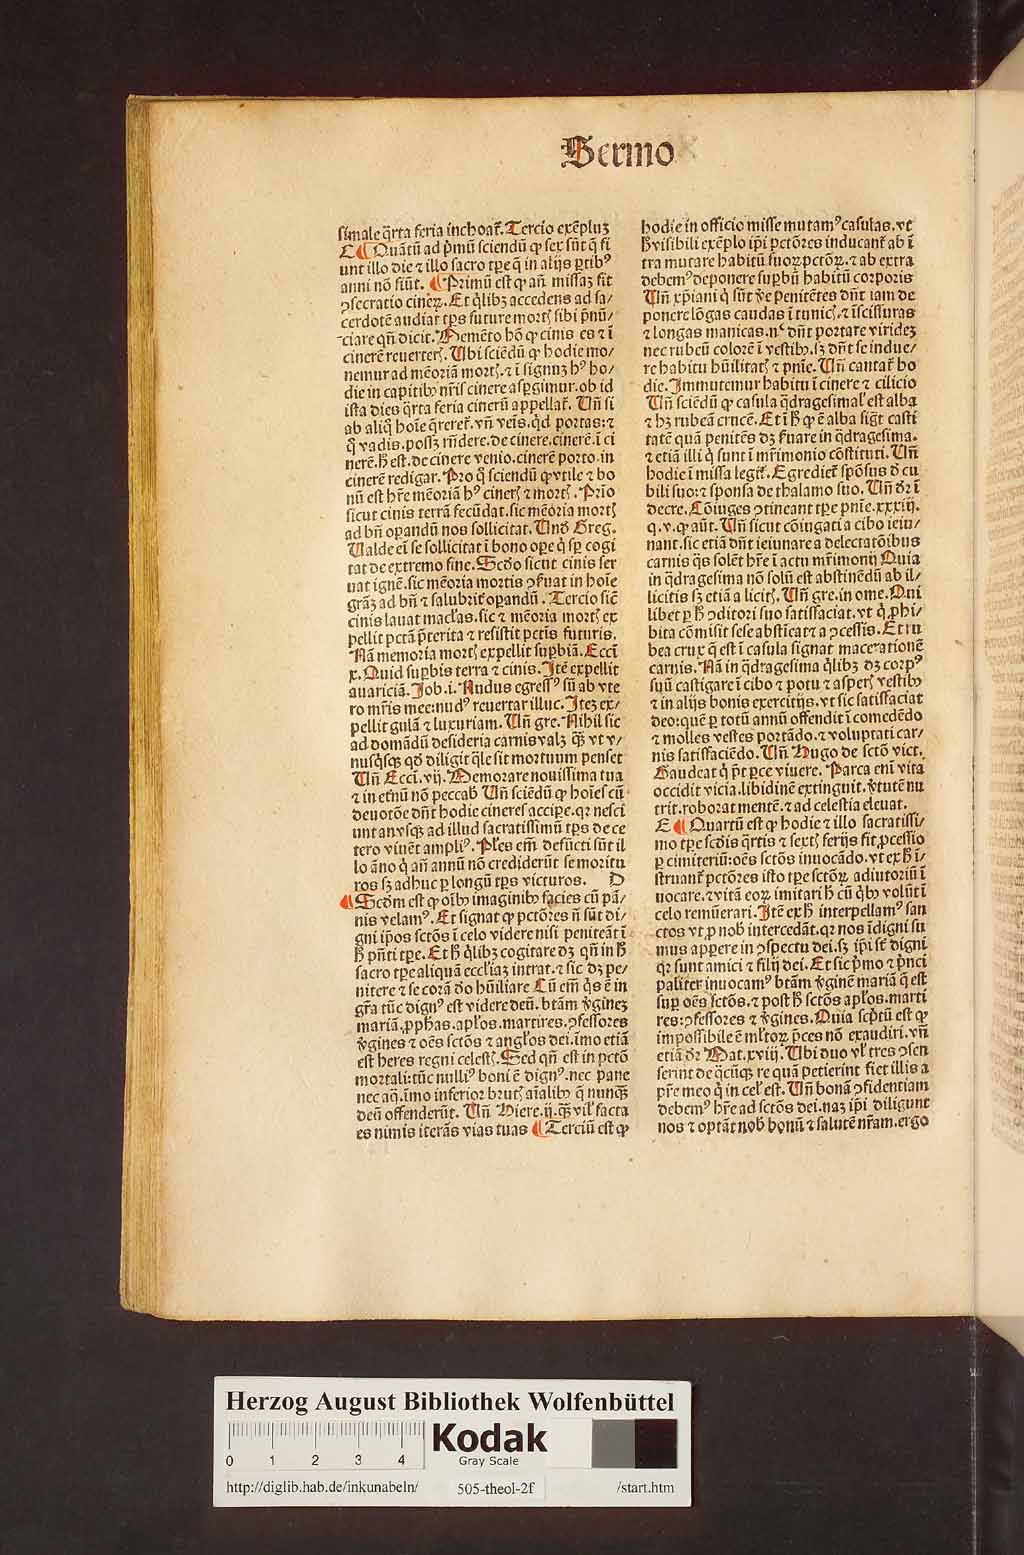 Sermo
simale q̄rta feria inchoat᷑. Tercio exēpluꝫ
C ¶ Quātū ad p̄mū sciendū ꝙ sex sūt q̄ fi
unt illo die ⁊ illo sacro tp̄e q̄ in alijs ꝑtibꝰ
anni nō fiūt. ¶ Primū est ꝙ añ missaꝫ fit
ꝯsecratio cineꝝ. Et q̄libꝫ accedens ad sa/
cerdotē audiat tp̄s future mortꝭ sibi p̄nū/
ciare qñ dicit. Memēto hō ꝙ cinis es ⁊ ī
cinerē reuertetꝭ. Ubi sciēdū ꝙ hodie mo/
nemur ad mēoriā mortꝭ. ⁊ ī signuꝫ hꝰ ho/
die in capitibꝰ nr̄is cinere aspgimur. ob id
ista dies q̄rta feria cinerū appellat᷑. Uñ si
ab aliq̄ hoīe q̄reret᷑. vñ veīs. q̄d portas: ⁊
q̄ vadis. possꝫ rn̄dere. de cinere. cinerē. ī ci
nerē. h̄ est. de cinere venio. cinerē porto. in
cinerē redigar. Pro q̄ sciendū ꝙ vtile ⁊ bo
nū est hr̄e mēoriā hꝰ cinerꝭ ⁊ mortꝭ. Prīo
sicut cinis terrā fecūdat. sic mēoria mortꝭ
ad bn̄ oꝑandū nos sollicitat. Und̄ Greg.
Ualde eī se sollicitat ī bono oꝑe q̄ sp̄ cogi
tat de extremo fine. Scd̄o sicut cinis ser
uat ignē. sic mēoria mortis ꝯẜuat in hoīe
grāꝫ ad bn̄ ⁊ salubrit᷑ oꝑandū. Tercio siē
cinis lauat mac̄las. sic ⁊ mēoria mortꝭ ex
pellit pctā p̄terita ⁊ resistit pctīs futuris.
Nā memoria mortꝭ expellit suꝑbiā. Eccī
x. Quid suꝑbis terra ⁊ cinis. Itē expellit
auariciā. Job. i. Nudus egressꝰ sū ab vte
ro mr̄is mee: nudꝰ reuertar illuc. Iteꝫ ex/
pellit gulā ⁊ luxuriam. Uñ gre. Nihil sic
ad domādū desideria carnis valꝫ qꝫ̄ vt v/
nusq̄sqꝫ qd̄ diligit q̄le sit mortuum penset
Uñ Eccī. vij. Memorare nouissima tua
⁊ in etn̄ū nō peccab̄ Uñ sciēdū ꝙ hoīes cū
deuotōe dn̄t hodie cineres acciꝑe. qꝛ nesci
unt an vsqꝫ ad illud sacratissimū tp̄s de ce
tero viuēt ampliꝰ. Pl̄es em̄ defūcti sūt il
lo āno q̄ añ annū nō crediderūt se moritu
ros sꝫ adhuc ꝑ longū tp̄s victuros. D
¶ Scd̄m est ꝙ oībꝰ imaginibꝰ facies cū pā/
nis velamꝰ. Et signat ꝙ pctōres n̄ sūt di/
gni ip̄os sctōs ī celo videre nisi peniteāt ī
h̄ pn̄ti tp̄e. Et h̄ q̄libꝫ cogitare dꝫ qñ in h̄
sacro tp̄e aliquā eccl̄iaꝫ intrat. ⁊ sic dꝫ pe/
nitere ⁊ se corā d̄o hūiliare Cū em̄ q̄s ē in
gr̄a tūc dignꝰ est videre deū. btām v̄gineꝫ
mariā, ꝓphas. apl̄os. martires. ꝯfessores
v̄gines ⁊ oēs sctōs ⁊ angl̄os dei. imo etiā
est heres regni celestꝭ. Sed qñ est in pctō
mortali: tūc nulliꝰ boni ē dignꝰ. nec pane
nec aq̄. imo inferior brutꝭ aīalibꝰ q̄ nunqꝫ̄
deū offenderūt. Uñ Hiere. ij. qꝫ̄ vil̓ facta
es nimis iterās vias tuas ¶ Terciū est ꝙ
hodie in officio misse mutamꝰ casulas. vt
h̄ visibili exēplo ip̄i pctōres inducant᷑ ab ī
tra mutare habitū suoꝝ pctōꝝ. ⁊ ab extra
debemꝰ deponere suꝑbū habitū corporis
Uñ xp̄iani q̄ sūt v̄e penitētes dn̄t iam de
ponere lōgas caudas ī tunicꝭ. ⁊ īscissuras
⁊ longas manicas. nꝰ dn̄t portare virideꝫ
nec rubeū colorē ī vestibꝰ. sꝫ dn̄t se indue/
re habitu hūilitatꝭ ⁊ pn̄ie. Uñ cantat᷑ ho
die. Immutemur habitu ī cinere ⁊ cilicio
Uñ sciēdū ꝙ casula q̄dragesimal̓ est alba
⁊ hꝫ rubeā crucē. Et ī h̄ ꝙ ē alba sigt᷑ casti
tatē quā penitēs dꝫ ẜuare in q̄dragesima.
⁊ etiā illi q̄ sunt ī mr̄imonio cōstituti. Uñ
hodie ī missa legit᷑. Egrediet᷑ spōsus d̄ cu
bili suo: ⁊ sponsa de thalamo suo. Uñ dr̄ ī
decre. Cōiuges ꝯtineant tp̄e pn̄ie. xxxiij.
q. v. ꝙ aūt. Uñ sicut cōiugati a cibo ieiu/
nant. sic etiā dn̄t ieiunare a delectatōibus
carnis q̄s solēt hr̄e ī actu mr̄imonij Quia
in q̄dragesima nō solū est abstinēdū ab il/
licitis sꝫ etiā a licitꝭ. Uñ gre. in ome. Qui
libet ꝑ h̄ ꝯditori suo satisfaciat. vt q̄ ꝓhi/
bita cōmisit sese abstīeat ⁊ a ꝯcessis. Et ru
bea crux q̄ est ī casula signat macerationē
carnis. Nā in q̄dragesima q̄libꝫ dꝫ corpꝰ
suū castigare ī cibo ⁊ potu ⁊ asꝑꝭ vestibꝰ
⁊ in alijs bonis exercitijs. vt sic satisfaciat
deo: quē ꝑ totū annū offendit ī comedēdo
⁊ molles vestes portādo. ⁊ voluptati car/
nis satisfaciēdo. Uñ Hugo de sctō vict.
Gaudeat q̄ p̄t ꝑce viuere. Parca enī vita
occidit vicia. libidinē extinguit. v̄tutē nu
trit. roborat mentē. ⁊ ad celestia eleuat.
E ¶ Quartū est ꝙ hodie ⁊ illo sacratissi/
mo tp̄e scd̄is q̄rtis ⁊ sextꝭ ferijs fit ꝓcessio
ꝑ cimiteriū: oēs sctōs inuocādo. vt ex h̄ ī/
struant᷑ pctōres isto tp̄e sctōꝝ adiutoriū ī
uocare. ⁊ vitā eoꝝ imitari h̄ cū q̄bꝰ volūt ī
celo remūerari. Itē ex h̄ interpellamꝰ san
ctos vt ꝓ nob̄ intercedāt. qꝛ nos īdigni su
mus apꝑere in ꝯspectu dei. sꝫ ip̄i st̄ digni
qꝛ sunt amici ⁊ filij dei. Et sic p̄mo ⁊ p̄nci
paliter inuocamꝰ btām v̄ginē mariā q̄ est
suꝑ oēs sctōs. ⁊ post h̄ sctōs apl̄os. marti
res: ꝯfessores ⁊ v̄gines. Quia scp̄tū est ꝙ
impossibile ē ml̓toꝝ p̄ces nō exaudiri. vñ
etiā dr̄ Mat. xviij. Ubi duo vl̓ tres ꝯsen
serint de q̄cūqꝫ re quā petierint fiet illis a
pr̄e meo q̄ in cel̓ est. Uñ bonā ꝯfidentiam
debemꝰ hr̄e ad sctōs dei. naꝫ ip̄i diligunt
nos ⁊ optāt nob̄ bonū ⁊ salutē nr̄am. ergo
Herzog August Bibliothek Wolfenbüttel
0 1 2 3 4
Kodak
Gray Scale
http://diglib.hab.de/inkunabeln/ 505-theol-2f /start.htm